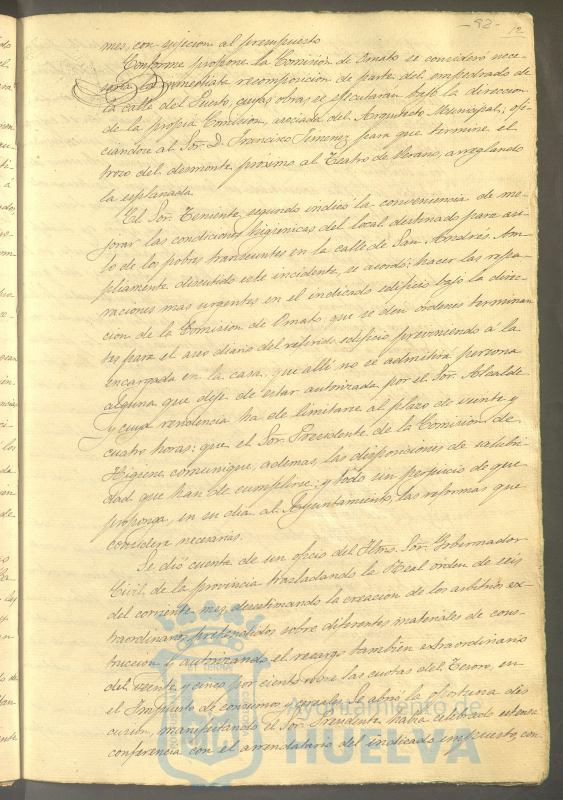 -92-
12
mes, con sujecion al presupuesto
Conforme propone la Comisión de Ornato se consideró nece-
saria la inmediata recomposicion de parte del empedrado de
la calle del Puerto, cuyas obras, se ejecutaran bajo la direccion
de la propia Comision, asociada del Arquitecto Municipal; ofi-
ciandose al Sor. D. Francisco Jimenez para que termine el
trozo del desmonte proximo al Teatro de Verano, arreglando
la esplanada.
El Sor. Teniente segundo indicó la conveniencia de me-
jorar las condiciones higienicas del local destinado para asi-
lo de los pobres transeuntes en la calle de San Andrés. Am-
pliamente discutido este incidente, se acordó; hacer las repa-
raciones mas urgentes en el indicado edificio bajo la direc-
cion de la Comision de Ornato, que se den órdenes terminan
tes para el aseo diario del referido edificio previniendo á la
encargada en la casa, que allí no se admitira persona
alguna que deje de estar autorizada por el Sor. Alcalde
y cuya residencia ha de limitarse al plazo de veinte y
cuatro horas: que el Sor. Presidente de la Comision de
Higiene comunique, ademas, las disposiciones de salubri-
dad que han de cumplirse: y todo sin perjuicio de que
proponga, en su dia, al Ayuntamiento, las reformas que
considere necesarias.
Se dió cuenta de un oficio del Iltmo. Sor. Gobernador
Civil de la provincia trasladando la Real orden de seis
del corriente mes, desestimando la creacion de los arbitrios ex-
traordinarios pretendidos sobre diferentes materiales de cons-
truccion y autorizando el recargo tambien extraordinario
del veinte y cinco por ciento sobre las cuotas del Tesoro, en
el Impuesto de consumos y cereales. Se abrió la oportuna dis
cusion, manifestando el Sor. Presidente habia celebrado estensa
conferencia con el arrendatario del indicado impuesto, con
Ayuntamiento de
HUELVA